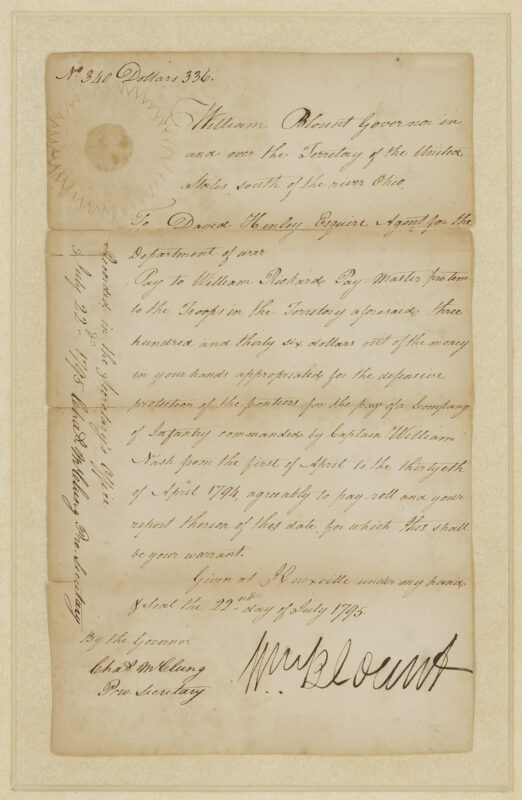 No 340 Dollars 336.
William Blount Governor in
and over the Territory of the United
States, south of the river Ohio
To David Henley Esquire Agent for the
Department of war
Pay to William Rickard Pay Master protem
to the Troops in the Territory aforesaid, three
hundred and thirty six dollars out of the money
in your hands appropriated for the defensive
protection of the frontiers for the pay of a Company
of Infantry commanded by Captain William
Nash from the first of April to the thirtyeth
of April 1794, agreeably to pay-roll and your
report thereon of this date, for which this shall
be your warrant.
Given at Knoxville under my hand
& Seal the 22nd day of July 1795
By the Governor
Chas. McClung
Prov. Secretary
Wm. Blount
Recorded in the Secretary's Office
July 22d. 1795 Chas. McClung Pro. Secretary